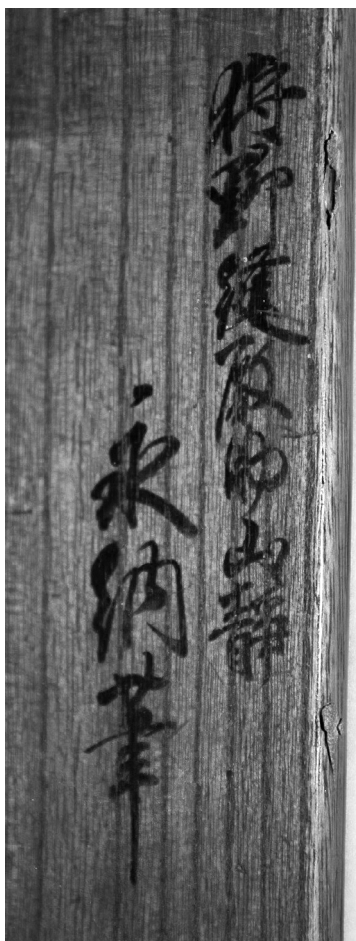 狩野縫殿助山静
永納筆